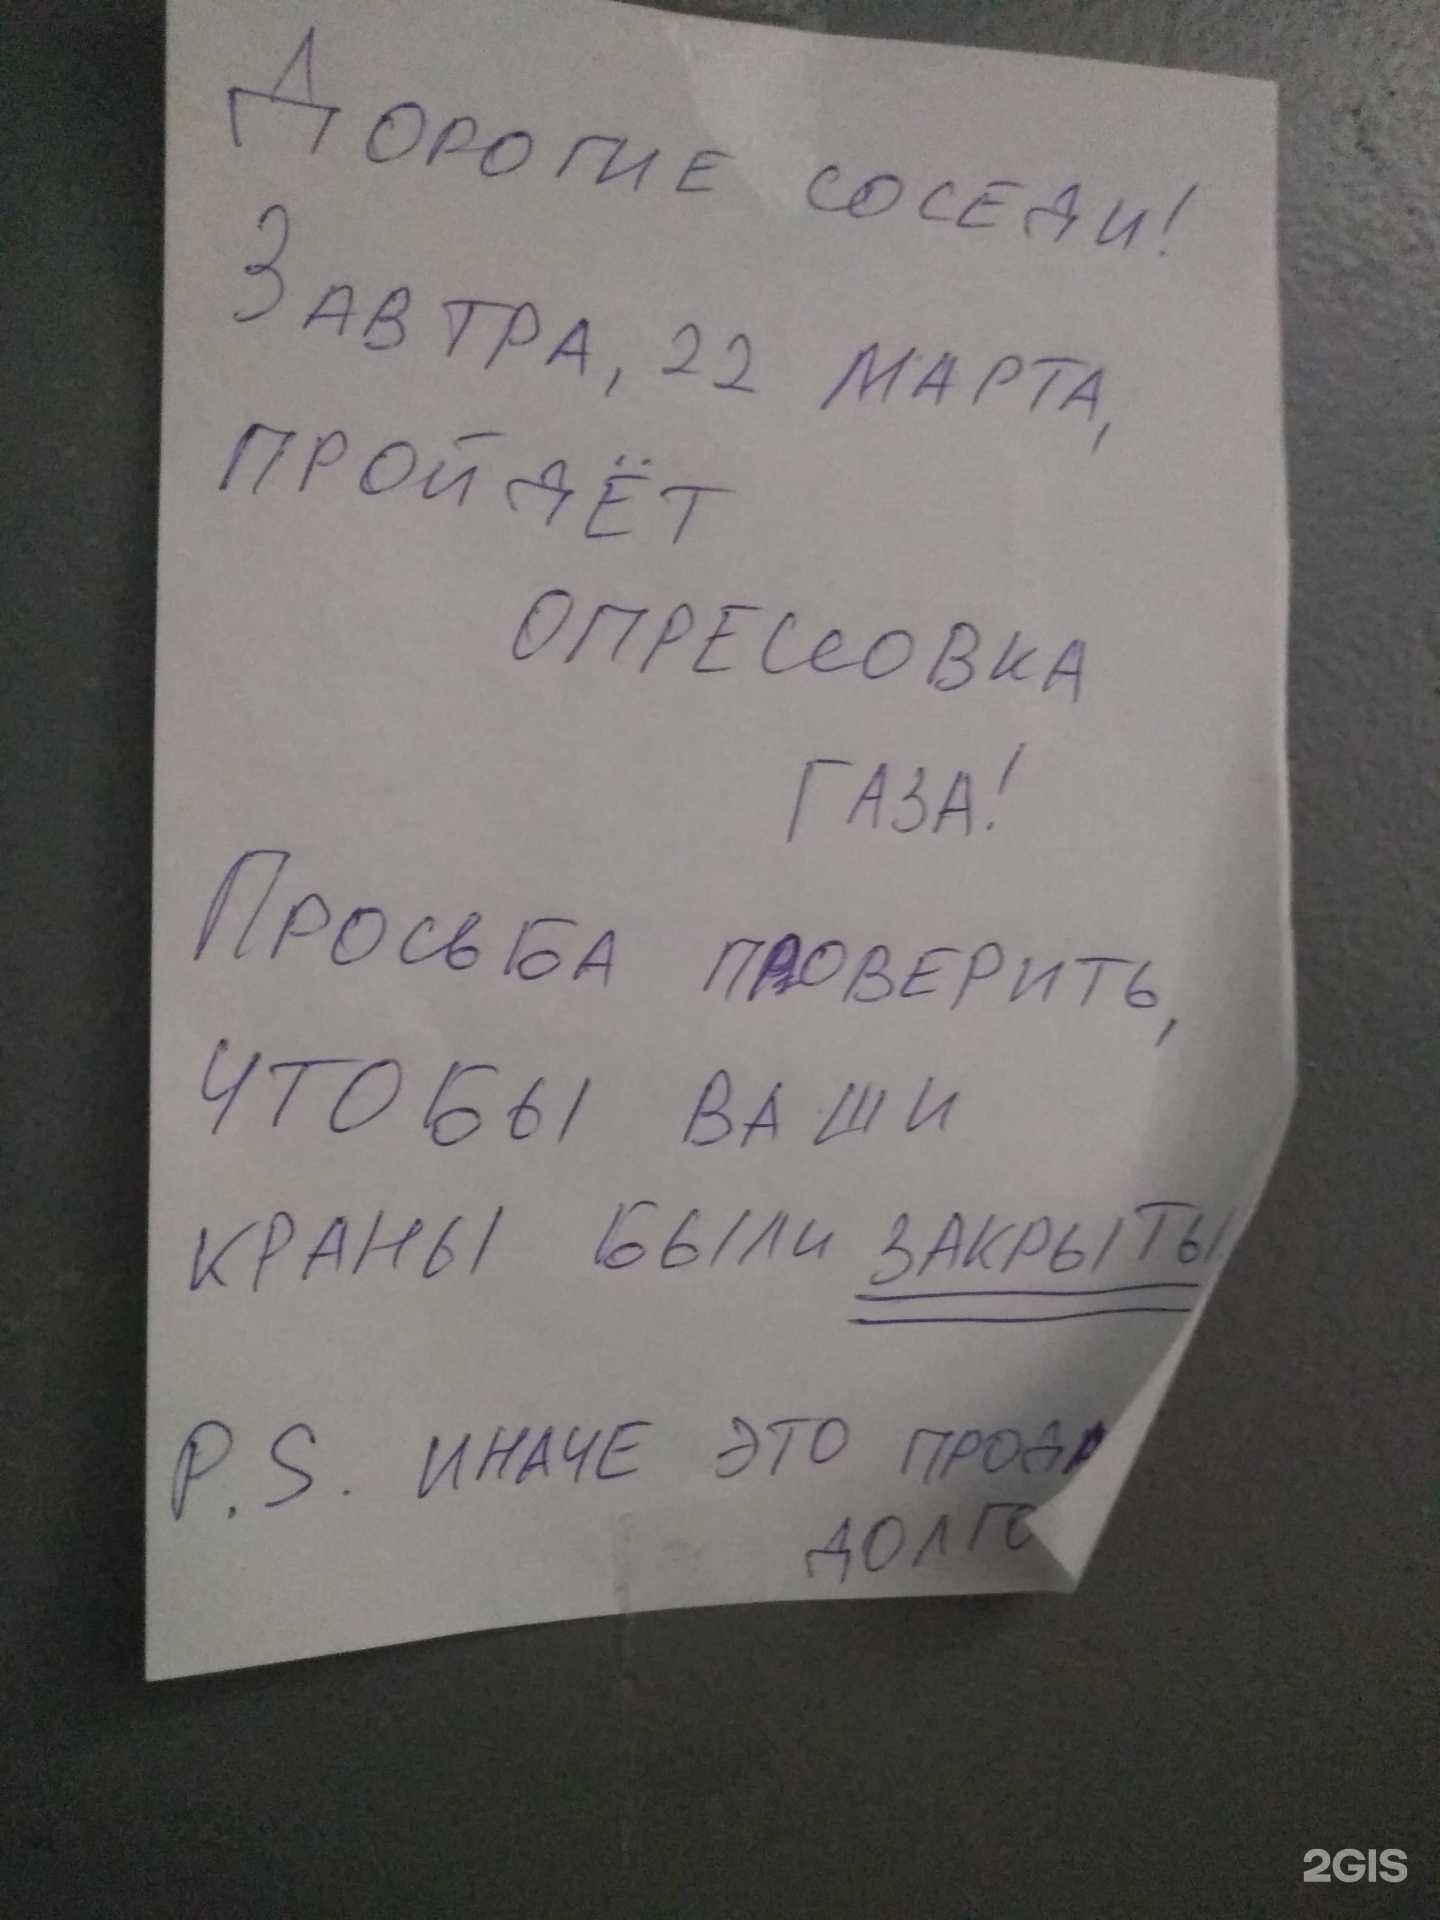 Дорогие соседи!
Завтра, 22 марта,
пройдёт
опрессовка
газа!
Просьба проверить,
чтобы ваши
краны были закрыты
P.S. иначе это
долго
2GIS